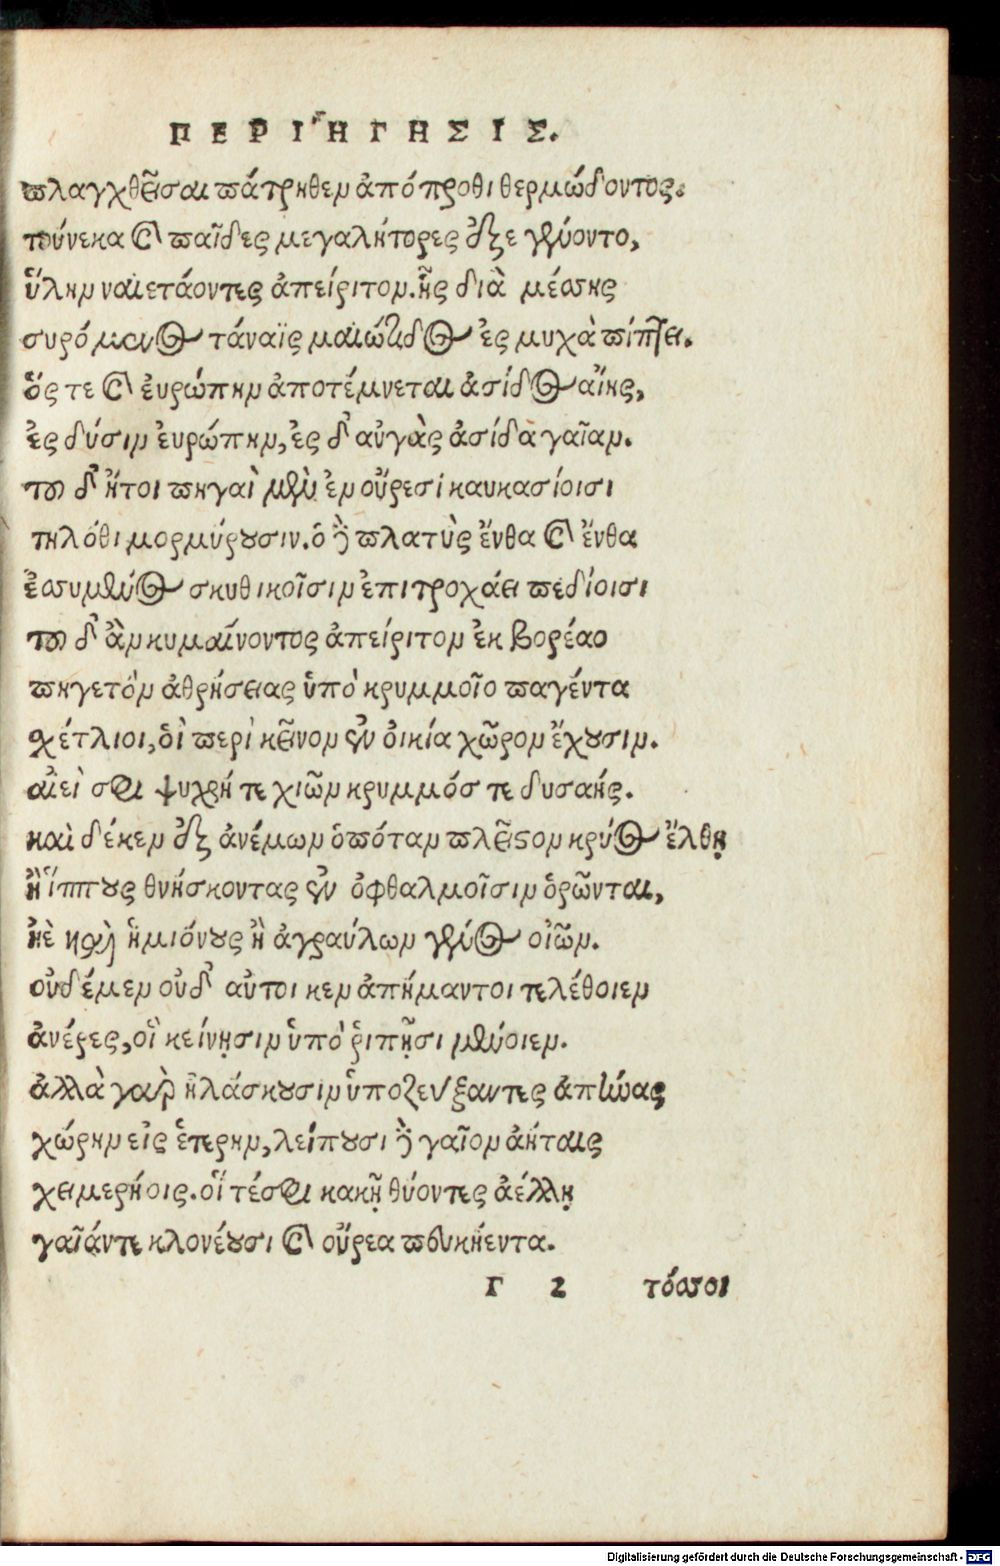 ΠΕΡΙΉΓΗΣΙΣ.
πλαγχθεῖσαι πάτρηθεν ἀπόπροθι θερμώδοντος.
τούνεκα καὶ παῖδες μεγαλήτορες ὄζε γένοντο,
ὕλην ναιετάοντες ἀπείριτον. ἧς διὰ μέσσης
συρόμενος τάναϊς μαιώτιδος ἐς μυχὰ πίπτει.
ὅς τε καὶ ἐυρώπην ἀποτέμνεται ἀσίδος αἴης,
ἐς δύσιν ἐυρώπην, ἐς δ' αὐγὰς ἀσίδα γαῖαν.
τοῦ δ' ἤτοι πηγαὶ μὲν ἐν οὔρεσι καυκασίοισι
τηλόθι μορμύρουσιν. ὁ δὲ πλατὺς ἔνθα καὶ ἔνθα
ἐσσυμένος σκυθικοῖσιν ἐπιτροχάει πεδίοισι
τοῦ δ' ἂν κυμαίνοντος ἀπείριτον ἐκ βορέαο
πηγετὸν ἀθρήσειας ὑπὸ κρυμμοῖο παγέντα
σχέτλιοι, ὁὶ περὶ κεῖνον ἐν ὀικία χῶρον ἔχουσιν.
αἰεὶ σφι ψυχρή τε χιὼν κρυμμός τε δυσαής.
καὶ δέκεν ὄζ ἀνέμων ὁπόταν πλεῖστον κρύος ἔλθῃ
ἢ ἵππους θνήσκοντας ἐν ὀφθαλμοῖσιν ὁρῶνται,
ἠὲ καὶ ἡμιόνους ἢ ἀγραύλων γένος οἰῶν.
οὐδέμεν οὐδ' αὐτοι κεν ἀπήμαντοι τελέθοιεν
ἀνέρες, οἳ κείνῃσιν ὑπὸ ῥιπῇσι μένοιεν.
ἀλλὰ γὰρ ἠλάσκουσιν ὑποζεύξαντες ἀπήνας
χώρην εἰς ἑτερην, λείπουσι δὲ γαῖον ἀήταις
χειμερίοις. οἵ τέσφι κακῇ θύοντες ἀέλλῃ
γαῖάντε κλονέουσι καὶ οὔρεα πευκήεντα.
Γ 2 τόσσοι
Digitalisierung gefördert durch die Deutsche Forschungsgemeinschaft - DFG